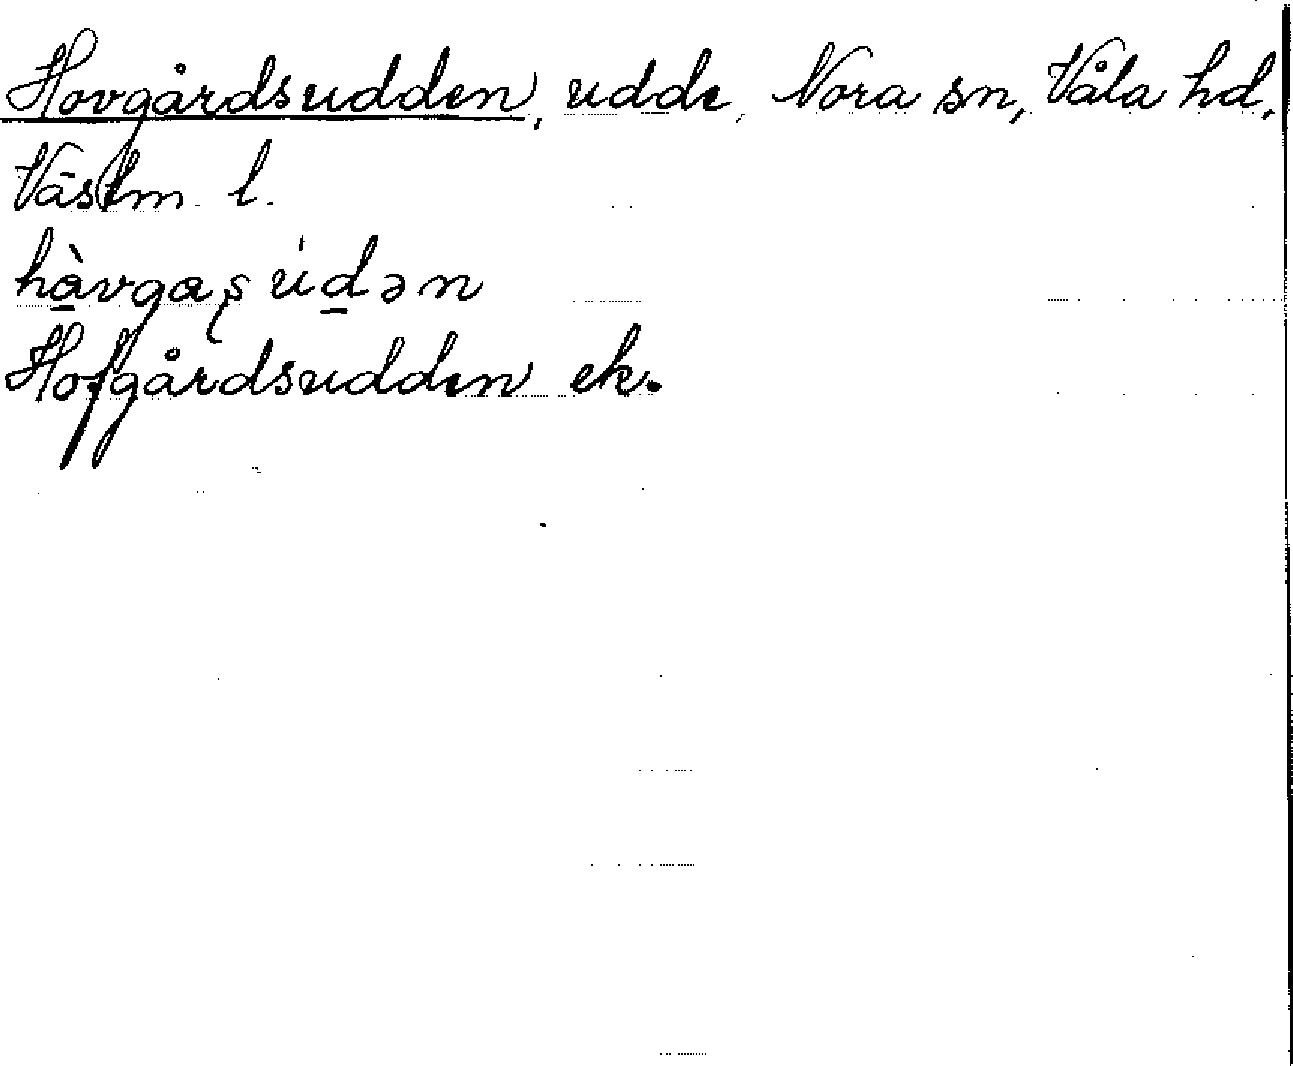 Hovgårdsudden, udde, Nora sn, Våla hd,
Västm. l.
hàvgaʂúdən
Hofgårdsudden ek.